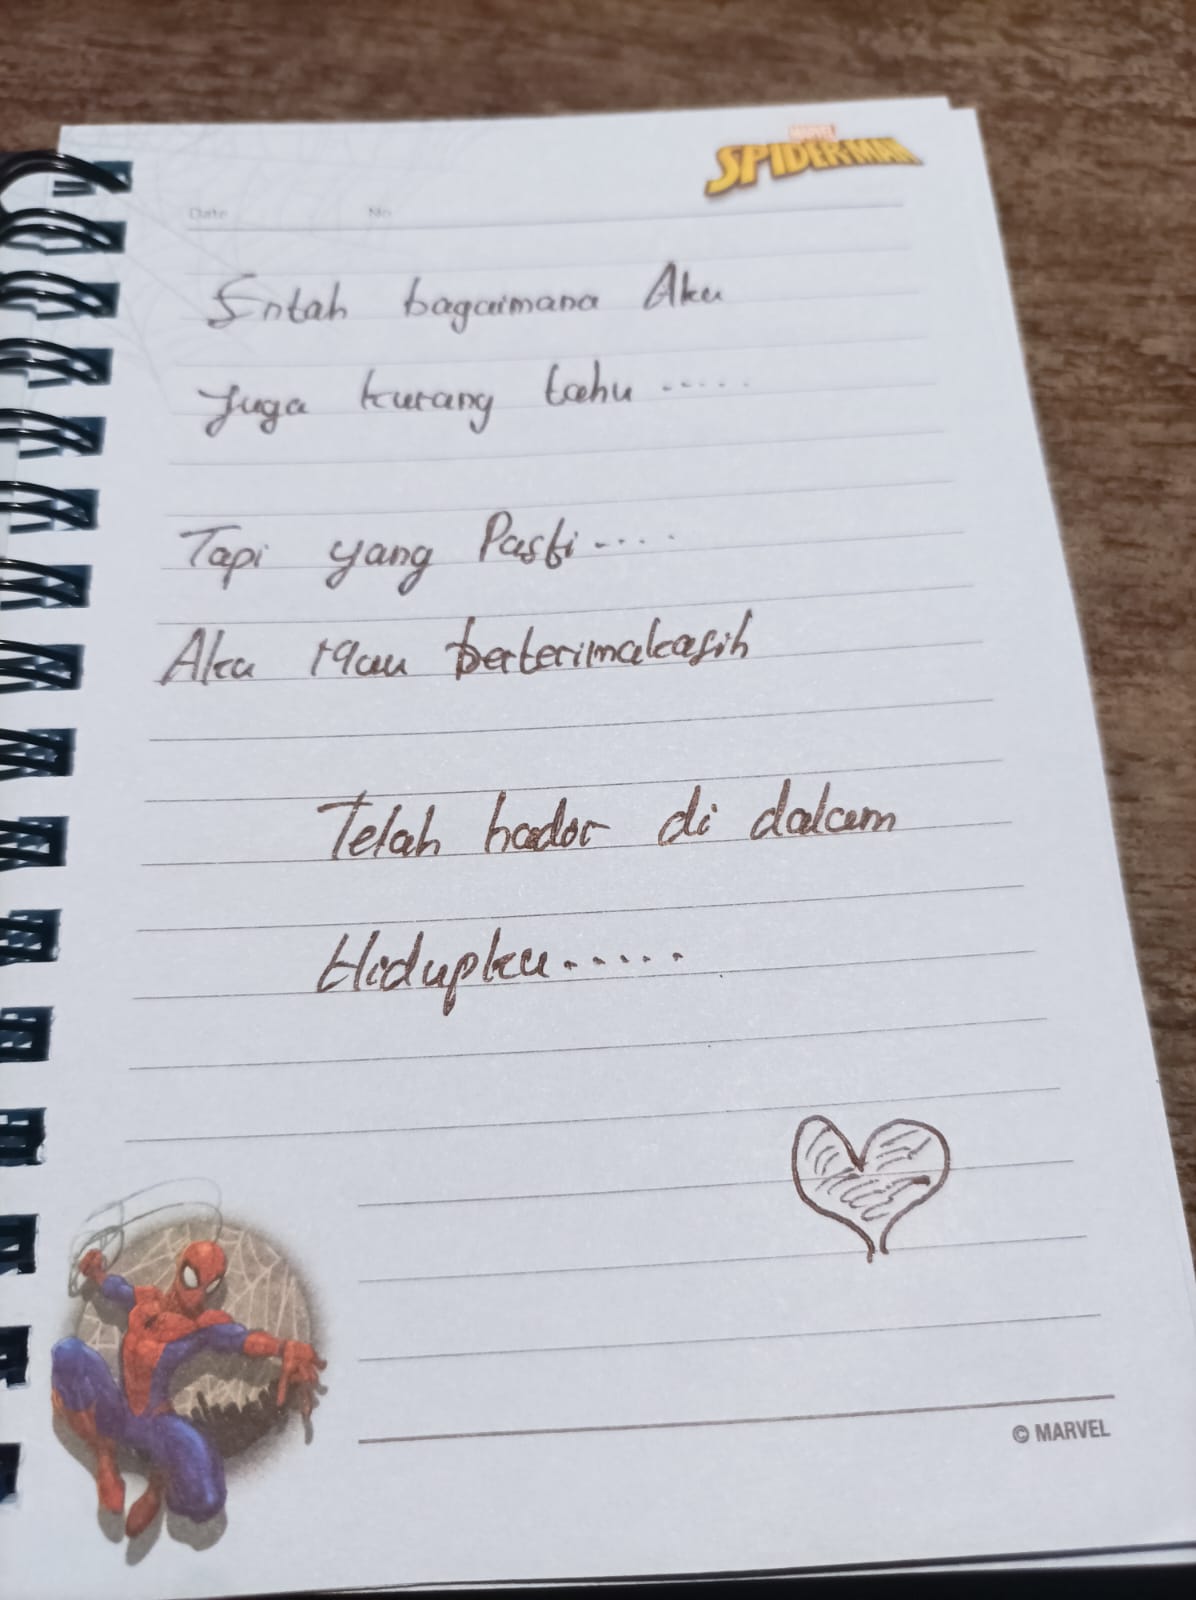 MARVEL
SPIDER-MAN
Date No
Entah bagaimana Aku
Juga kurang tahu .....
Tapi yang Pasti.....
Aku Mau berterimakasih
Telah hadir di dalam
Hidupku......
© MARVEL